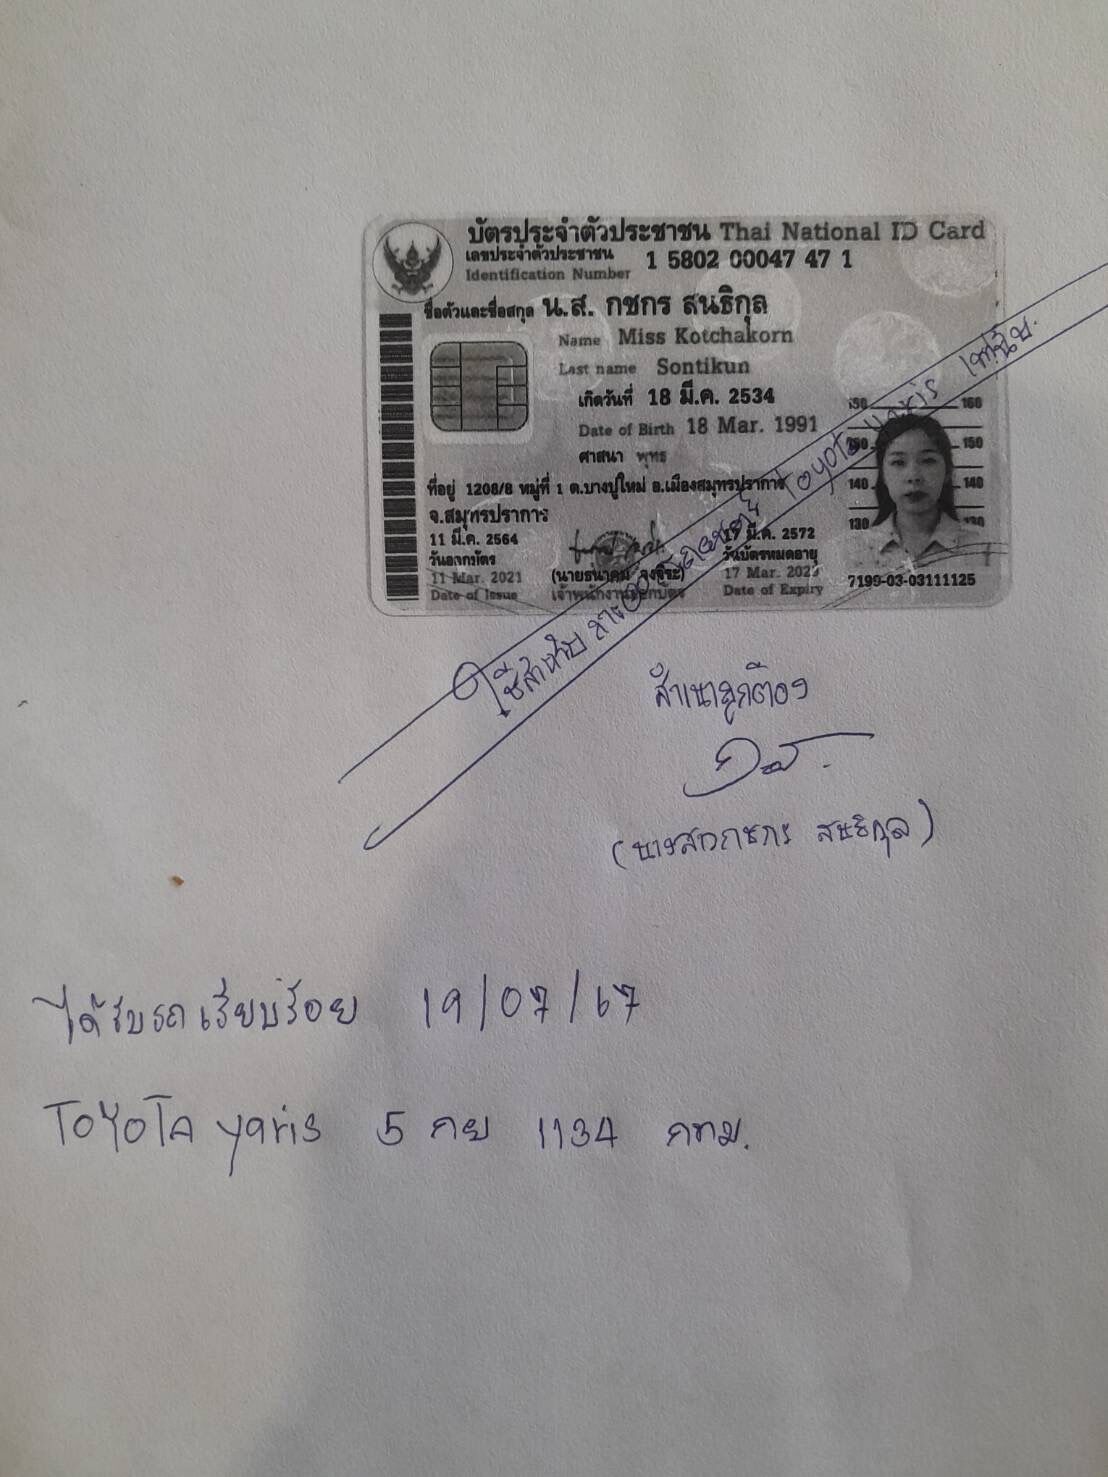 บัตรประจำตัวประชาชน Thai National ID Card
เลขประจำตัวประชาชน
Identification Number
1 5802 00047 47 1
ชื่อตัวและชื่อสกุล น.ส. กชกร สนธิกุล
Name Miss Kotchakorn
Last name Sontikun
เกิดวันที่ 18 มี.ค. 2534
Date of Birth 18 Mar. 1991
ศาสนา พุทธ
ที่อยู่ 1208/8 หมู่ที่ 1 ต.บางปูใหม่ อ.เมืองสมุทรปราการ
จ.สมุทรปราการ
11 มี.ค. 2564
วันออกบัตร
11 Mar. 2021
Date of Issue
เจ้าพนักงานออกบัตร
17 มี.ค. 2572
วันบัตรหมดอายุ
17 Mar. 2029
Date of Expiry
160
150 150
140 140
130 130
7199-03-03111125
ใช้สำหรับ Toyota yaris เท่านั้น
สำเนาถูกต้อง
(นางสาวกชกร สนธิกุล)
ได้รับรถเรียบร้อย 19/07/67
ToYoTa yaris 5 กย 1134 กทม.